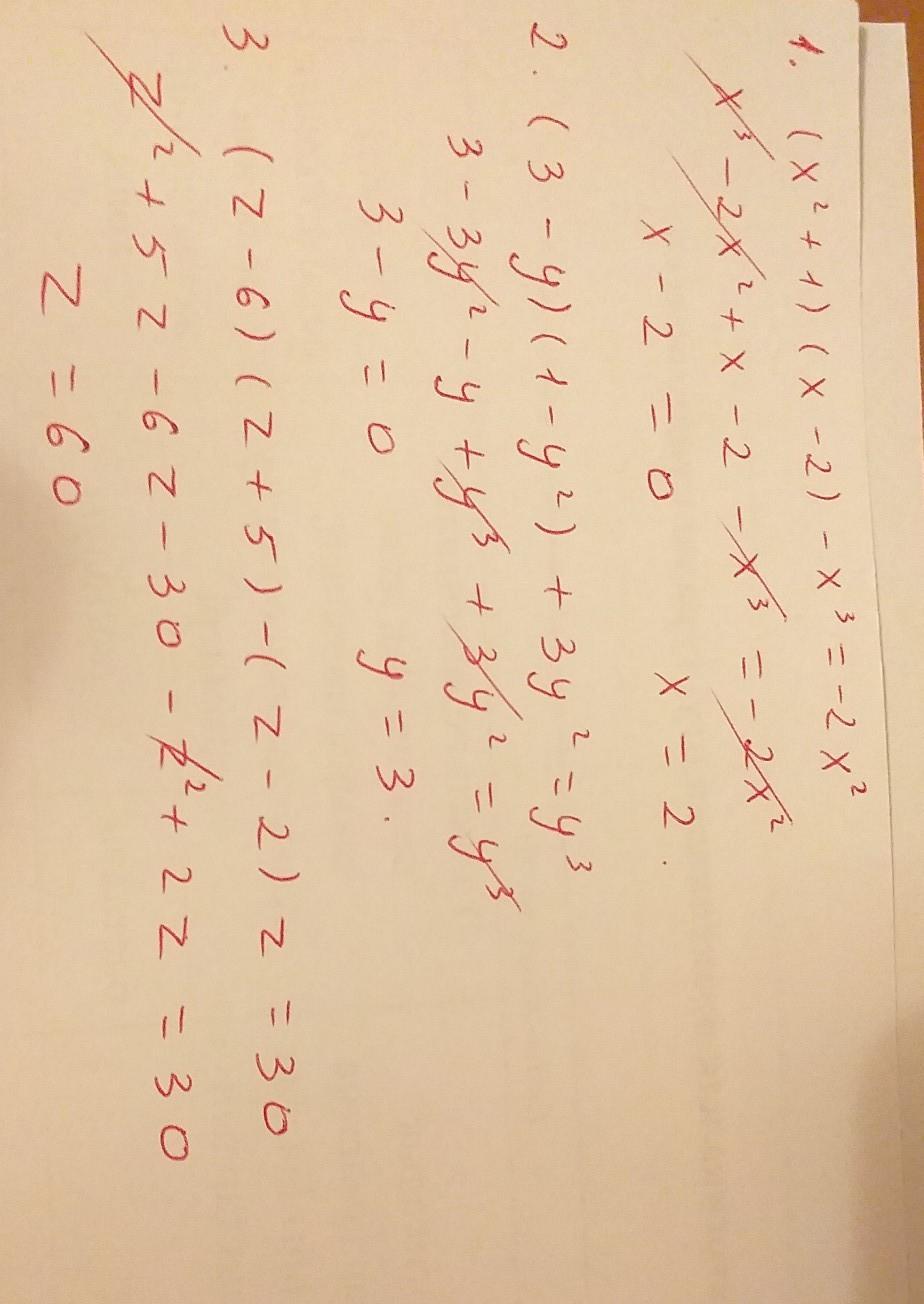 1. (x² + 1)(x - 2) - x³ = -2x²
x³ - 2x² + x - 2 - x³ = -2x²
x - 2 = 0 x = 2.
2. (3 - y)(1 - y²) + 3y² = y³
3 - 3y² - y + y³ + 3y² = y³
3 - y = 0 y = 3.
3. (z - 6)(z + 5) - (z - 2)z = 30
z² + 5z - 6z - 30 - z² + 2z = 30
z = 60